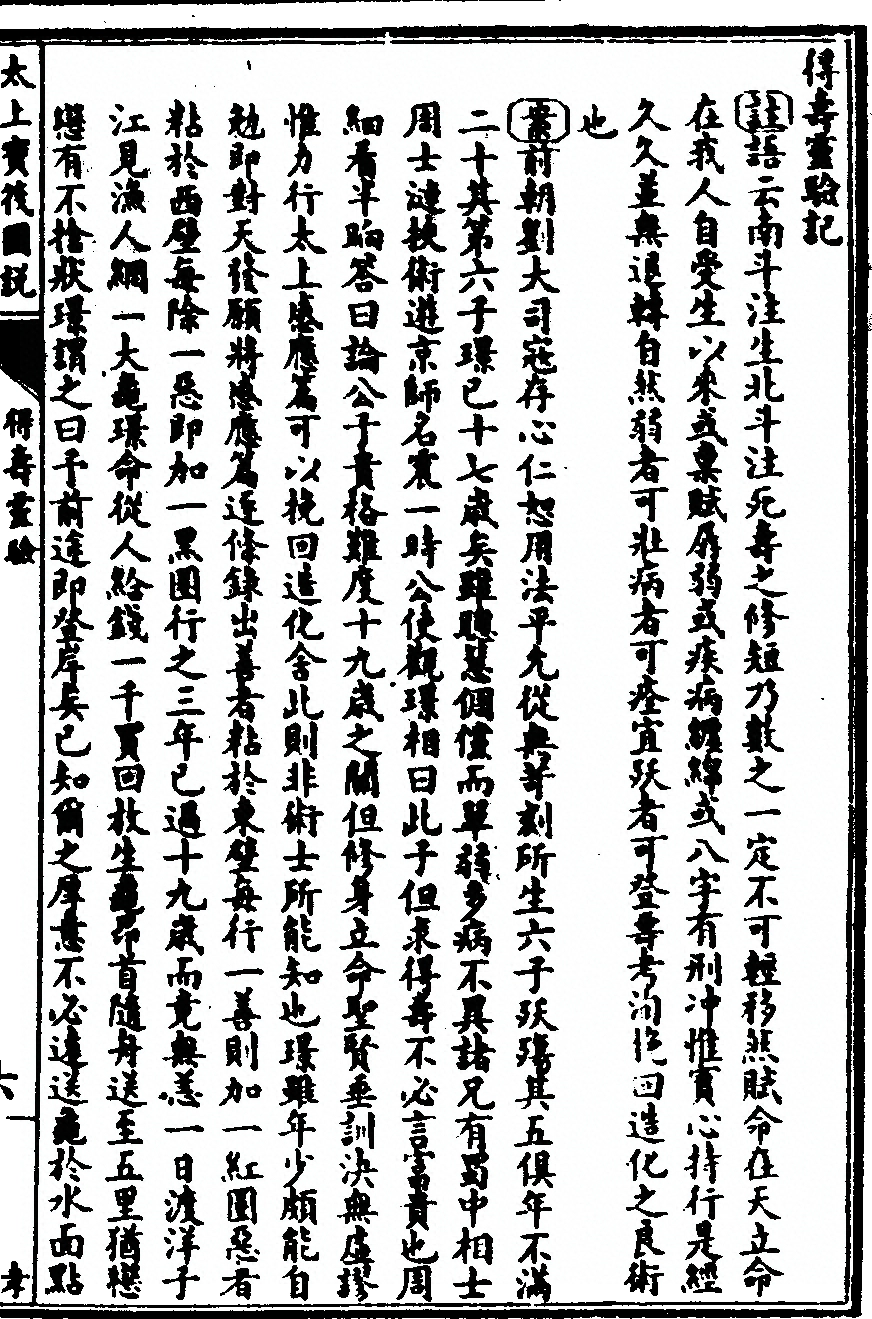 得壽靈驗記
註語云南斗注生北斗注死壽之修短乃數之一定不可輕移然賦命在天立命
在我人自受生以來或稟賦孱弱或疾病纏綿或八字有刑冲惟實心持行是經
久久並無退轉自然弱者可壯病者可痊宜殀者可登壽考洵挽回造化之良術
也
案前朝劉大司寇存心仁恕用法平允從無苛刻所生六子殀殤其五俱年不滿
二十其第六子璟已十七歲矣雖聰慧倜儻而單弱多病不異諸兄有蜀中相士
周士漣挾術遊京師名震一時公使觀璟相曰此子但求得壽不必言富貴也周
細看半晌答曰論公子貴格難度十九歲之關但修身立命聖賢垂訓決無虛謬
惟力行太上感應篇可以挽回造化舍此則非術士所能知也璟雖年少頗能自
勉即對天發願將感應篇逐條錄出善者粘於東壁每行一善則加一紅圈惡者
粘於西壁每除一惡即加一黑圈行之三年已過十九歲而竟無恙一日渡洋子
江見漁人網一大龜璟命從人給錢一千買回放生龜昂首隨舟送至五里猶戀
戀有不捨狀璟謂之曰予前途即登岸矣已知爾之厚意不必遠送龜於水面點
太上寶筏圖説
得壽靈驗
六
孝